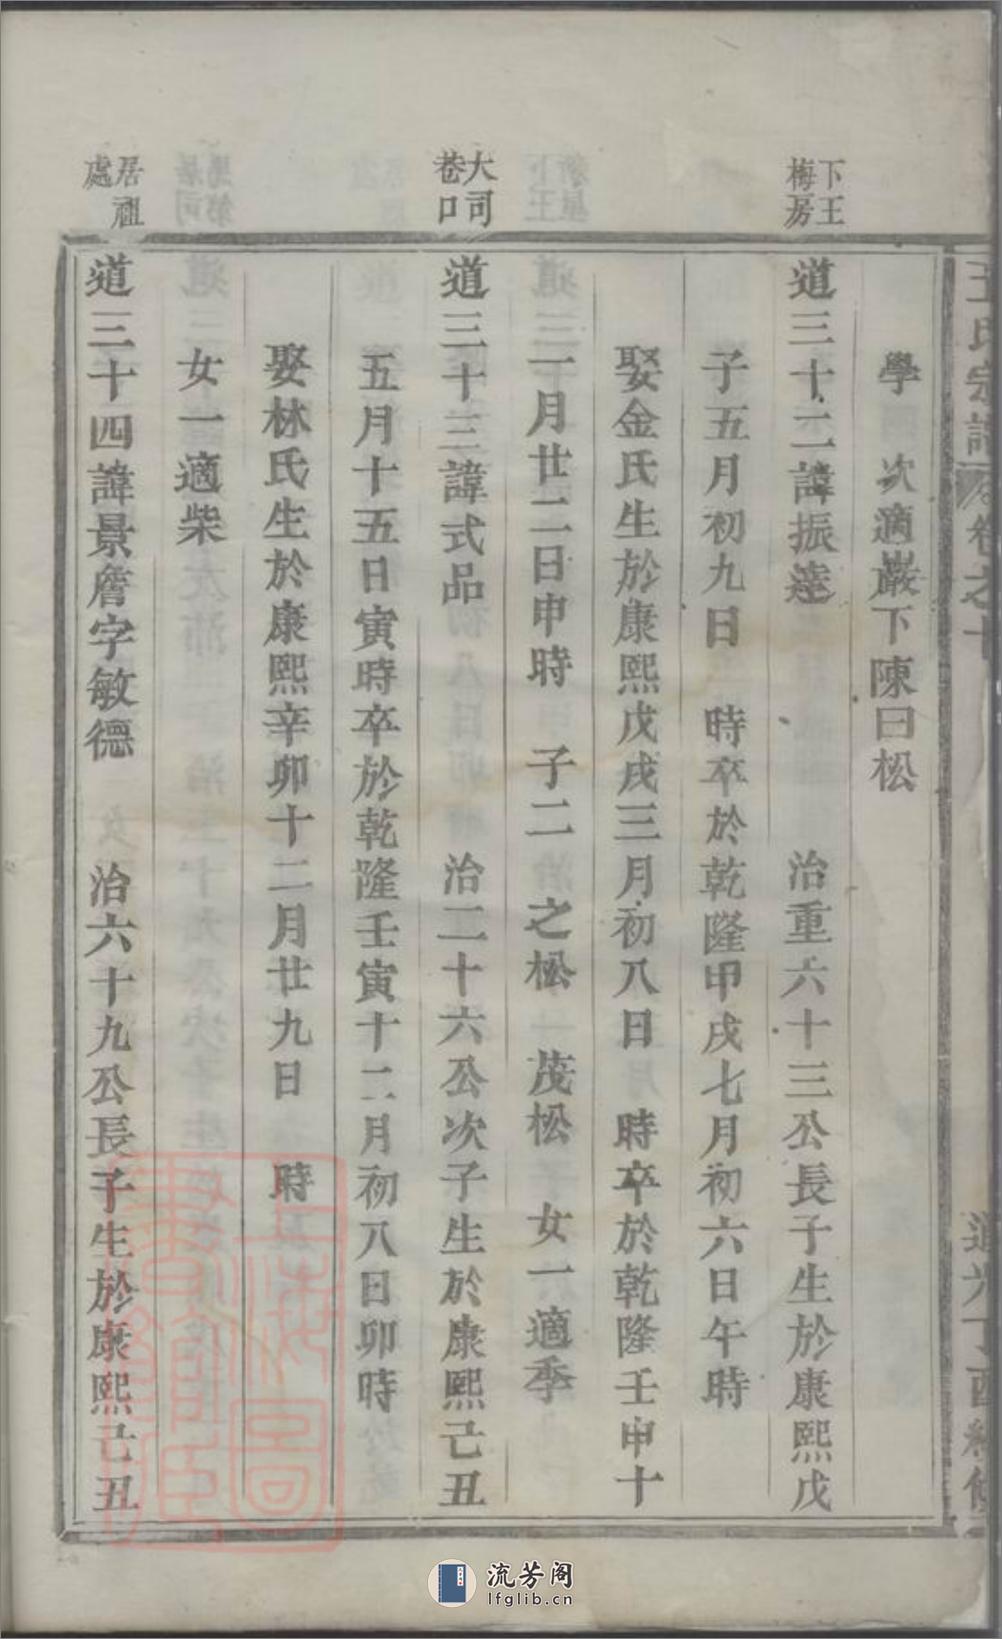 王氏宗譜
卷之十
道光丁酉
學 次適嚴下陳曰松
下王
梅房
道三十二諱振達 治重六十三公長子生於康熙戊
子五月初九日 時卒於乾隆甲戌七月初六日午時
娶金氏生於康熙戊戌三月初八日 時卒於乾隆壬申十
一月廿二日申時 子二 之松 茂松 女一適季
大司
巷口
道三十三諱式品 治二十六公次子生於康熙己丑
五月十五日寅時卒於乾隆壬寅十二月初八日卯時
娶林氏生於康熙辛卯十二月廿九日 時
女一適柴
居祖
處
道三十四諱景詹字敏德 治六十九公長子生於康熙己丑
上海圖書館藏
流芳阁
lfglib.cn